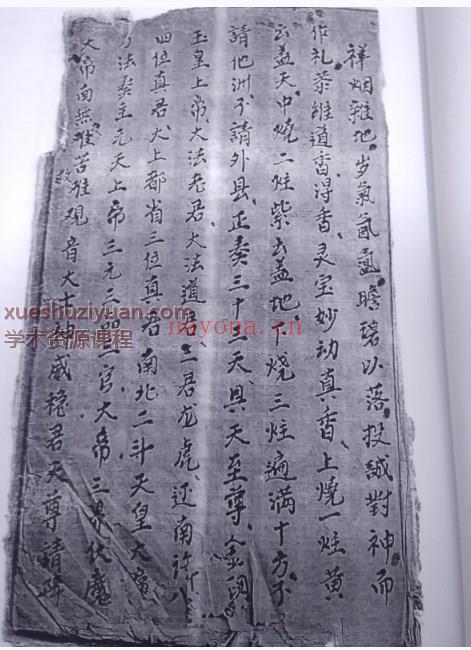 祥烟雜地岁氣氤氲瞻碧以落投誠對神而
作礼恭維道香淂香灵宝妙动真香上燒一炷黄
云盖天中燒二炷紫云盖地下烧三炷遍满十方不
請他洲不請外县正奏三十三天具天至尊金阙
玉皇上帝大法老君大法道君三君龙虎江南許八
四位真君大上都省三位真君南北二斗天皇大帝
万法奏主元天上帝三元三品三官大帝三界伏魔
大帝南無难救苦难观音大士威稳君天尊請降
xueshuziyuan.com
学术资源课程
nayona.cn